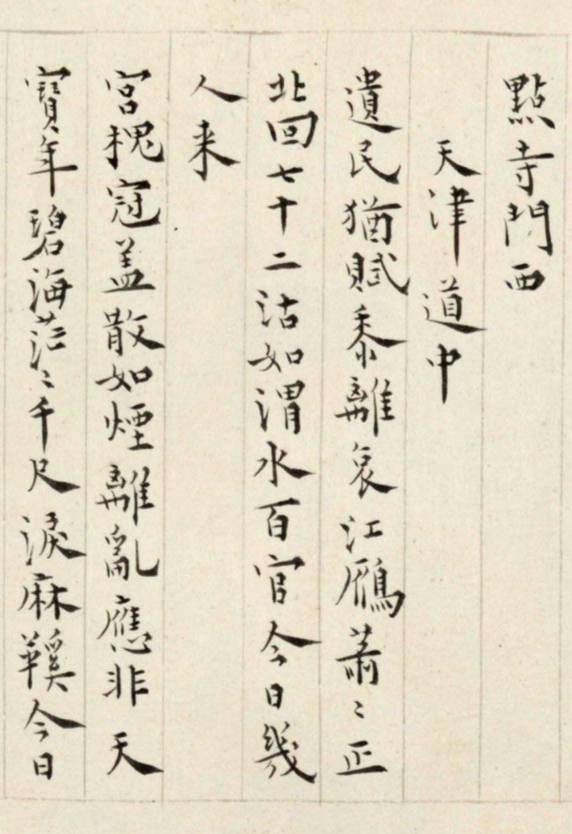 點寺門西
天津道中
遺民猶賦黍離哀江鴈蕭〻正
北回七十二沽如渭水百官今日幾
人来
宮槐冠盖散如煙離亂應非天
寶年碧海茫〻千尺淚麻鞵今日